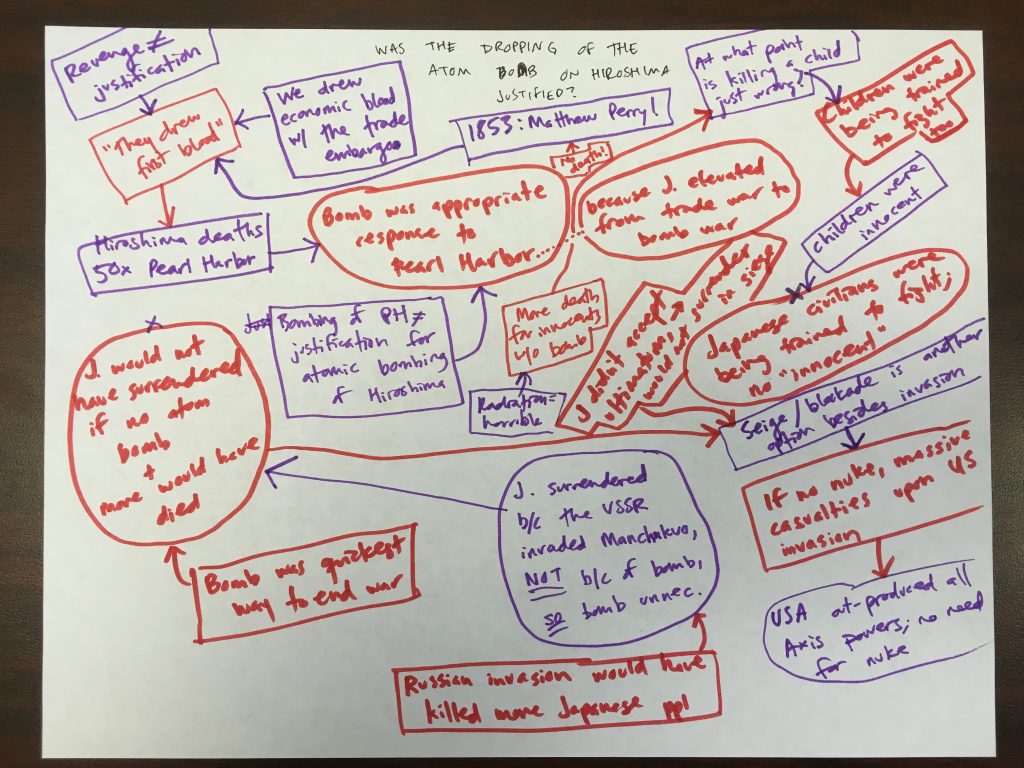 WAS THE DROPPING OF THE
ATOM BOMB ON HIROSHIMA
JUSTIFIED?
Revenge ≠
justification
"They drew
first blood"
We drew
economic blood
w/ the trade
embargoo
1853: Matthew Perry!
At what point
is killing a child
just wrong?
Children were
being trained
to fight
too
Hiroshima deaths
50x Pearl Harbor
Bomb was appropriate
response to
Pearl Harbor....
No
death!
because J. elevated
from trade war to
bomb war
children were
innocent
Bombing of PH ≠
justification for
atomic bombing
of Hiroshima
More death
for innocents
w/o bomb
Radiation =
horrible
J didn't accept
ultimatum,
would not surrender
in siege
Japanese civilians were
being trained to fight;
no "innocent"
J. would not
have surrendered
if no atom
bomb
+
more would have
died
Seige/blockade is another
option besides invasion
J. surrendered
b/c the USSR
invaded Manchukuo,
NOT b/c of bomb,
so bomb unnec.
If no nuke, massive
casualties upon US
invasion
Bomb was quickest
way to end war
USA out-produced all
Axis powers; no need
for nuke
Russian invasion would have
killed more Japanese ppl